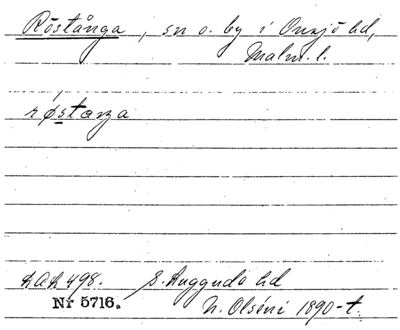 Röstånga, sn o. by i Onsjö hd,
Malm. l.
røstaŋa
LAL 498. S. Åsbo hd
Nr 5716. N. Olséni 1890-t.